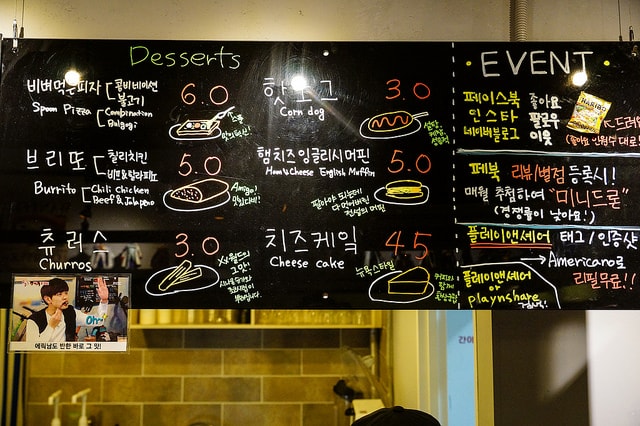 Desserts
비벼먹는피자
콤비네이션
불고기
Spoon Pizza
Combination
Bulgogi
6.0
핫도그
Corn dog
3.0
브리또
칠리치킨
Burrito
Chili Chicken
Beef & Jalapeno
5.0
Amigo!
햄치즈잉글리시머핀
Ham&Cheese English Muffin
5.0
츄러스
Churros
3.0
치즈케잌
Cheese cake
4.5
뉴욕스타일
에릭남도 반한 바로 그 맛!
EVENT
페이스북 좋아요
인스타 팔로우
네이버블로그 이웃
HARIBO
페북 리뷰/별점 등록시!
매월 추첨하여 "미니드론"
(경쟁률이 낮아요!)
플레이앤셰어 태그/인증샷
→ Americano로
리필무료!!
플레이앤셰어
playnshare
간이